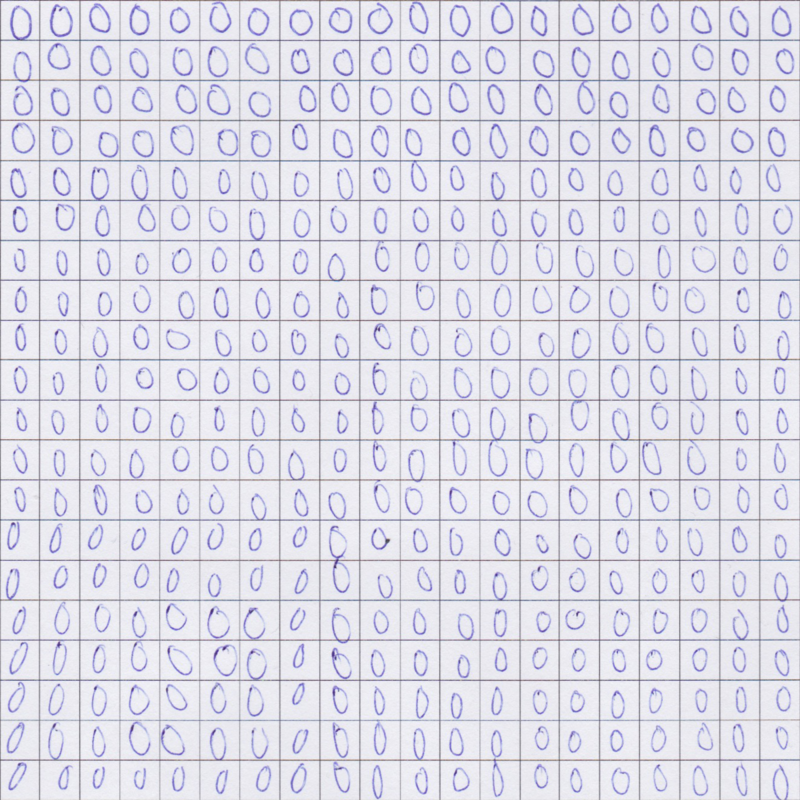 0 0 0 0 0 0 0 0 0 0 0 0 0 0 0 0 0 0 0 0
0 0 0 0 0 0 0 0 0 0 0 0 0 0 0 0 0 0 0 0
0 0 0 0 0 0 0 0 0 0 0 0 0 0 0 0 0 0 0 0
0 0 0 0 0 0 0 0 0 0 0 0 0 0 0 0 0 0 0 0
0 0 0 0 0 0 0 0 0 0 0 0 0 0 0 0 0 0 0 0
0 0 0 0 0 0 0 0 0 0 0 0 0 0 0 0 0 0 0 0
0 0 0 0 0 0 0 0 0 0 0 0 0 0 0 0 0 0 0 0
0 0 0 0 0 0 0 0 0 0 0 0 0 0 0 0 0 0 0 0
0 0 0 0 0 0 0 0 0 0 0 0 0 0 0 0 0 0 0 0
0 0 0 0 0 0 0 0 0 0 0 0 0 0 0 0 0 0 0 0
0 0 0 0 0 0 0 0 0 0 0 0 0 0 0 0 0 0 0 0
0 0 0 0 0 0 0 0 0 0 0 0 0 0 0 0 0 0 0 0
0 0 0 0 0 0 0 0 0 0 0 0 0 0 0 0 0 0 0 0
0 0 0 0 0 0 0 0 0 0 0 0 0 0 0 0 0 0 0 0
0 0 0 0 0 0 0 0 0 0 0 0 0 0 0 0 0 0 0 0
0 0 0 0 0 0 0 0 0 0 0 0 0 0 0 0 0 0 0 0
0 0 0 0 0 0 0 0 0 0 0 0 0 0 0 0 0 0 0 0
0 0 0 0 0 0 0 0 0 0 0 0 0 0 0 0 0 0 0 0
0 0 0 0 0 0 0 0 0 0 0 0 0 0 0 0 0 0 0 0
0 0 0 0 0 0 0 0 0 0 0 0 0 0 0 0 0 0 0 0